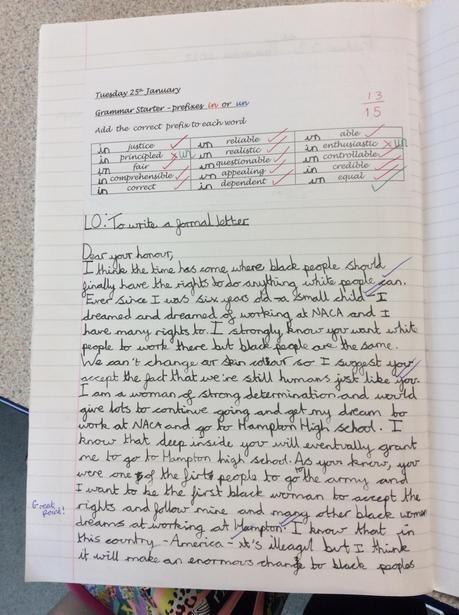 Tuesday 25th January
13
15
Grammar Starter - prefixes in or un
Add the correct prefix to each word
in justice un reliable un able
in principled un un realistic in enthusiastic un
un fair un questionable un controllable
in comprehensible un appealing in credible
in correct in dependent un equal
LO: To write a formal letter
Dear your honour,
I think the time has come where black people should
finally have the rights to do anything white people can.
Ever since I was six years old - a small child - I
dreamed and dreamed of working at NACA and I
have many rights to. I strongly know you want white
people to work there but black people are the same.
We can't change our skin colour so I suggest you
accept the fact that we're still humans just like you.
I am a woman of strong determination and would
give lots to continue going and get my dream to
work at NACA and go to Hampton High school. I
know that deep inside you will eventually grant
me to go to Hampton high school. As you know, you
were one of the first people to go to the army and
I want to be the first black woman to accept the
Great point!
rights and follow mine and many other black women
dreams at working at Hampton. I know that in
this country - America - it's illegal but I think
it will make an enormous change to black peoples